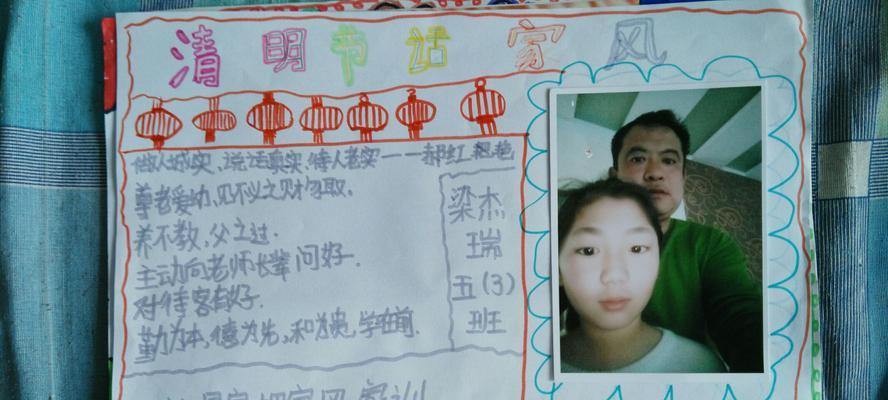 清明节话家风
做人诚实、说话真实、待人老实——郝红艳
尊老爱幼，见不义之财勿取。
养不教，父之过.
主动向老师长辈问好.
对待客有好.
勤为本，德为先，和为贵，学在前.
梁杰
瑞
五(3)
班
家风家训